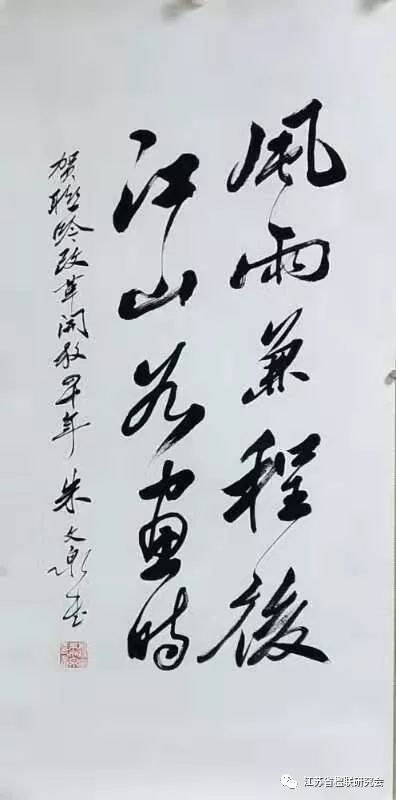 風雨兼程後
江山若畫時
賀聯吟改革開放四十年 朱文泉書
江苏省楹联研究会